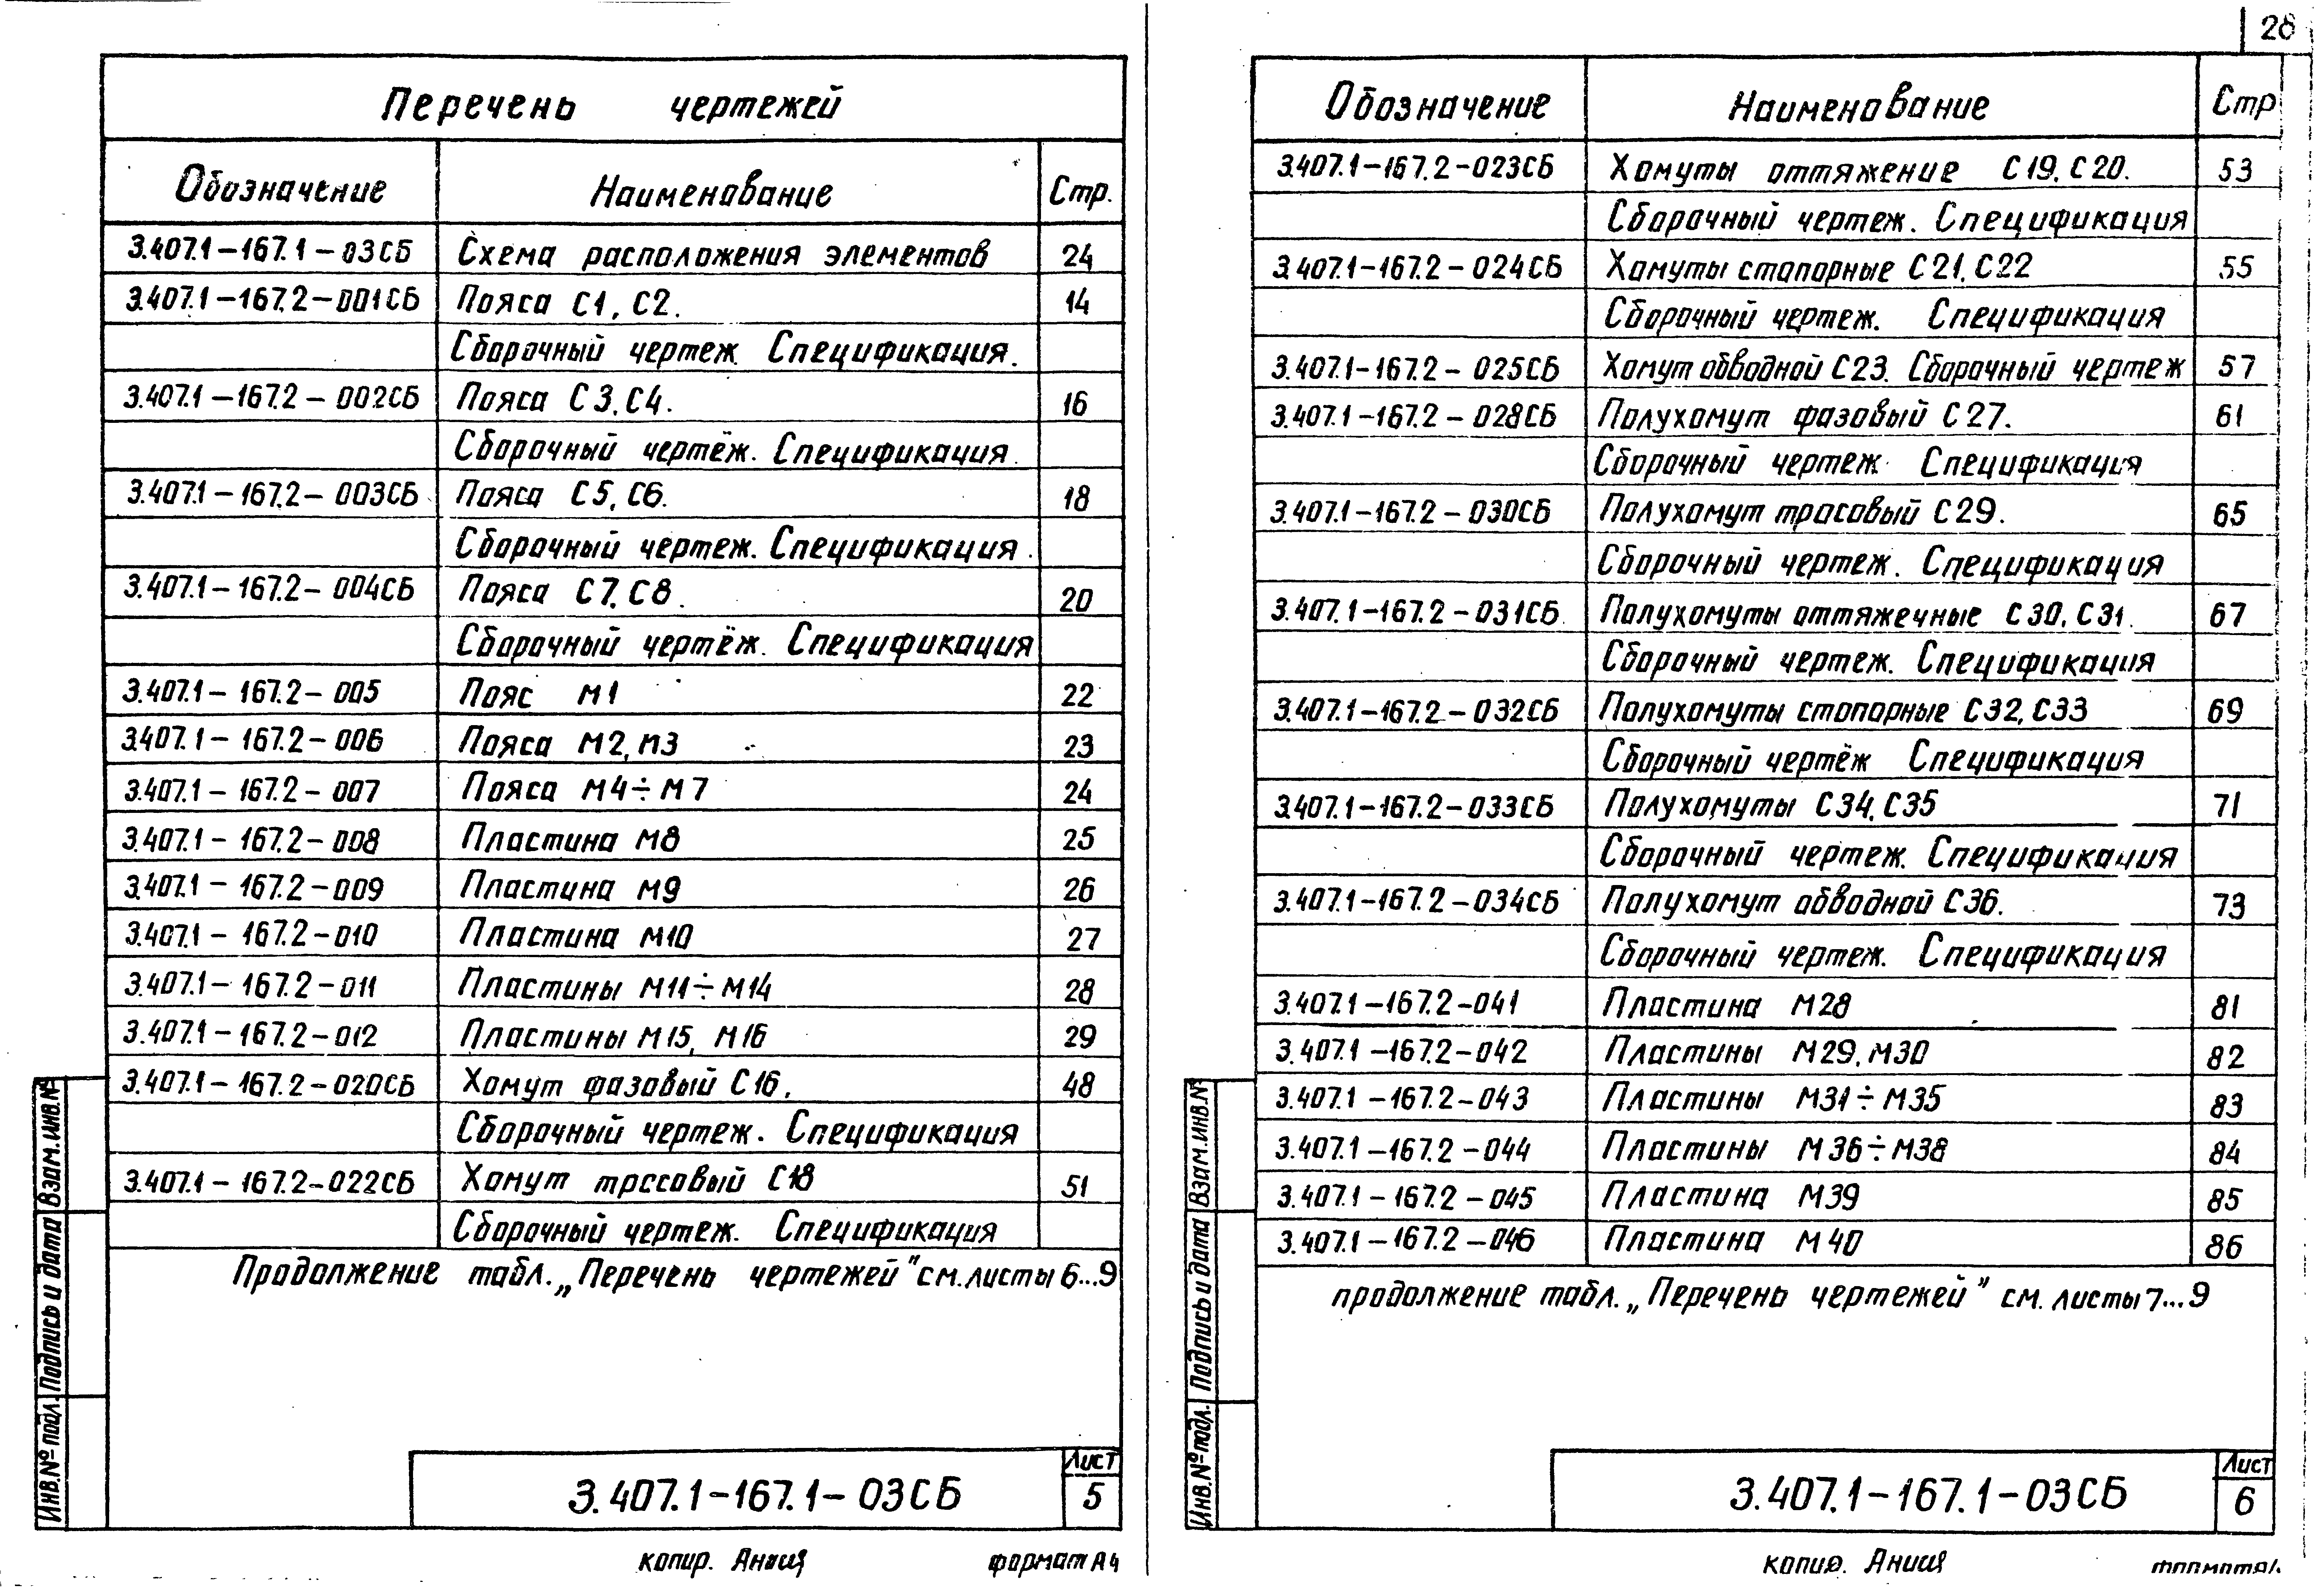 28
Перечень чертежей
Обозначение Наименование Стр.
3.407.1-167.1-03СБ Схема расположения элементов 24
3.407.1-167.2-001СБ Пояса С1, С2. 14
Сборочный чертеж Спецификация.
3.407.1-167.2-002СБ Пояса С3, С4. 16
Сборочный чертёж. Спецификация.
3.407.1-167.2-003СБ Пояса С5, С6. 18
Сборочный чертеж. Спецификация.
3.407.1-167.2-004СБ Пояса С7, С8. 20
Сборочный чертёж. Спецификация
3.407.1-167.2-005 Пояс М1 22
3.407.1-167.2-006 Пояса М2, М3 23
3.407.1-167.2-007 Пояса М4÷М7 24
3.407.1-167.2-008 Пластина М8 25
3.407.1-167.2-009 Пластина М9 26
3.407.1-167.2-010 Пластина М10 27
3.407.1-167.2-011 Пластины М11÷М14 28
3.407.1-167.2-012 Пластины М15, М16 29
3.407.1-167.2-020СБ Хомут фазовый С16. 48
Сборочный чертеж. Спецификация
3.407.1-167.2-022СБ Хомут трссовый С18 51
Сборочный чертеж. Спецификация
Продолжение табл. „Перечень чертежей" см. листы 6...9
Инв.№ подл. Подпись и дата Взам.инв.№
3.407.1-167.1-03СБ
Лист
5
копир. формат А4
Обозначение Наименование Стр
3.407.1-167.2-023СБ Хомуты оттяжение С19, С20. 53
Сборочный чертеж. Спецификация
3.407.1-167.2-024СБ Хомуты стопорные С21, С22 55
Сборочный чертеж. Спецификация
3.407.1-167.2-025СБ Хомут обводной С23. Сборочный чертеж 57
3.407.1-167.2-028СБ Полухомут фазовый С27. 61
Сборочный чертеж Спецификация
3.407.1-167.2-030СБ Полухомут тросовый С29. 65
Сборочный чертеж. Спецификация
3.407.1-167.2-031СБ Полухомуты оттяжечные С30, С31. 67
Сборочный чертеж. Спецификация
3.407.1-167.2-032СБ Полухомуты стопорные С32, С33 69
Сборочный чертёж Спецификация
3.407.1-167.2-033СБ Полухомуты С34, С35 71
Сборочный чертеж. Спецификация
3.407.1-167.2-034СБ Полухомут обводной С36. 73
Сборочный чертеж. Спецификация
3.407.1-167.2-041 Пластина М28 81
3.407.1-167.2-042 Пластины М29, М30 82
3.407.1-167.2-043 Пластины М31÷М35 83
3.407.1-167.2-044 Пластины М36÷М38 84
3.407.1-167.2-045 Пластина М39 85
3.407.1-167.2-046 Пластина М40 86
продолжение табл. „Перечень чертежей" см. листы 7...9
Инв.№ подл. Подпись и дата Взам.инв.№
3.407.1-167.1-03СБ
Лист
6
копир.